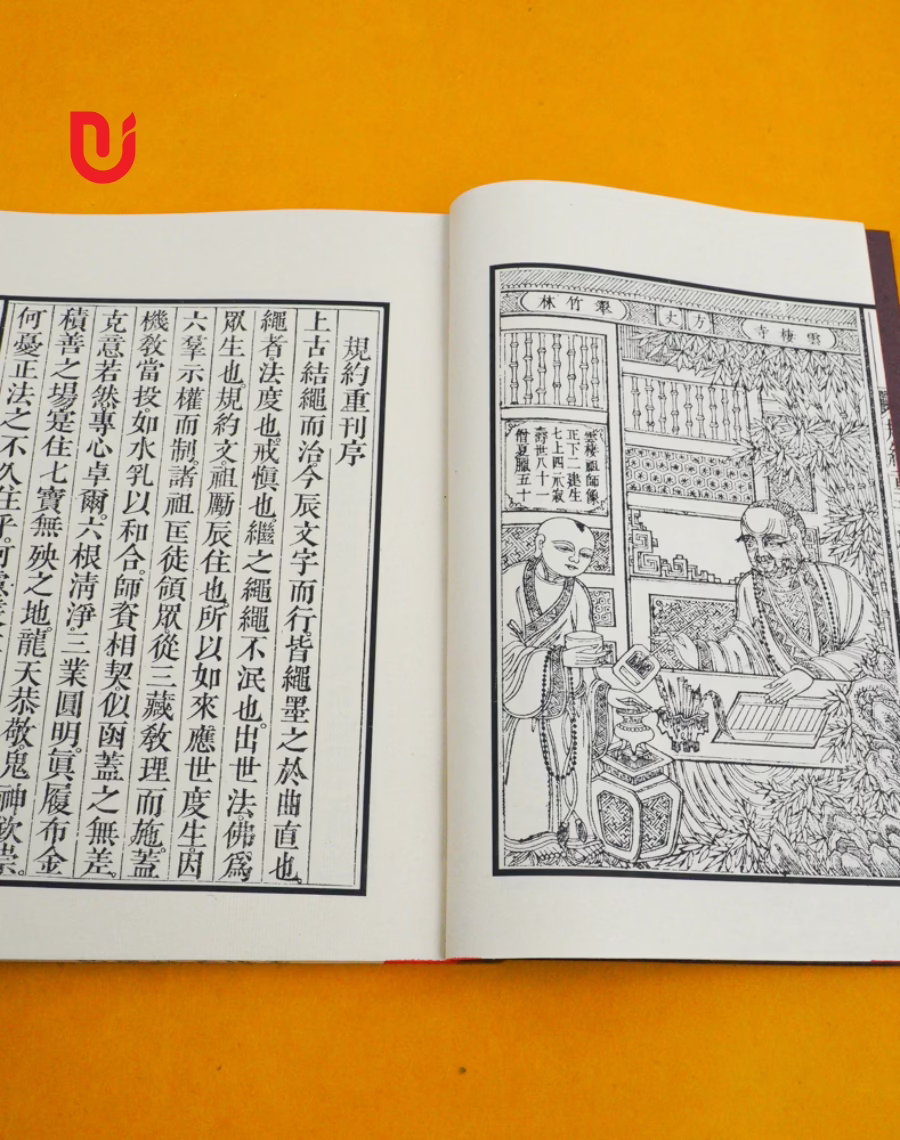 雲棲寺
方丈
翠竹林
雲棲祖師像
正下二建生
七上四示寂
壽世八十一
僧夏臘五十
規約重刊序
上古結繩而治。今辰文字而行。皆繩墨之於曲直也。
繩者。法度也。戒慎也。繼之繩繩不泯也。出世法佛爲
眾生也。規約文。祖勵辰住也。所以如來應世度生。因
六羣示權而制。諸祖匡徒領眾從三藏敎理而施。蓋
機敎當投。如水乳以和合。師資相契。似函蓋之無差。
克意若然專心卓爾。六根清淨。三業圓明。眞履布金
積善之場。寔住七寶無殃之地。龍天恭敬。鬼神欽崇。
何憂正法之不久住乎。何